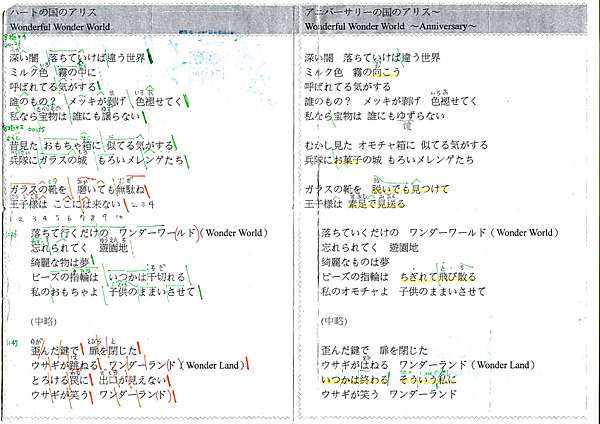 ハートの国のアリス
Wonderful Wonder World
深い闇 落ちていけば違う世界
ミルク色 霧の中に
呼ばれてる気がする
誰のもの? メッキが剥げ 色褪せてく
私なら宝物は 誰にも譲らない
昔見た おもちゃ箱に 似てる気がする
兵隊にガラスの城 もろいメレンゲたち
ガラスの靴を 磨いても無駄ね
王子様は ここには来ない 2 3 4
1 2 3 4 5 6 7 8 9 10
落ちて行くだけの ワンダーワールド(Wonder World)
忘れられてく 遊園地
綺麗な物は夢
ビーズの指輪は いつかは千切れる
私のおもちゃよ 子供のままいさせて
(中略)
歪んだ鍵で 扉を閉じた
ウサギが跳ねる ワンダーランド(Wonder Land)
とろける罠に 出口が見えない
ウサギが笑う ワンダーランド
アニバーサリーの国のアリス~
Wonderful Wonder World ~Anniversary~
深い闇 落ちていけば違う世界
ミルク色 霧の向こう
呼ばれてる気がする
誰のもの? メッキが剥げ 色褪せてく
私なら宝物は 誰にもゆずらない
むかし見た オモチャ箱に 似てる気がする
兵隊にお菓子の城 もろいメレンゲたち
ガラスの靴を 脱いでも見つけて
王子様は 素足で見送る
落ちていくだけの ワンダーワールド(Wonder World)
忘れられてく 遊園地
綺麗なものは夢
ビーズの指輪は ちぎれて飛び散る
私のオモチャよ 子供のままいさせて
(中略)
歪んだ鍵で 扉を閉じた
ウサギがはねる ワンダーランド(Wonder Land)
いつかは終わる そういう私に
ウサギが笑う ワンダーランド